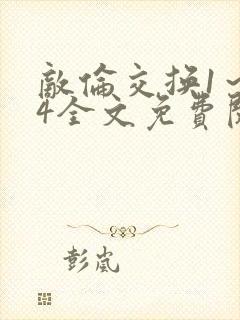 敵倫交换1～
4全文免費閱
彭嵐